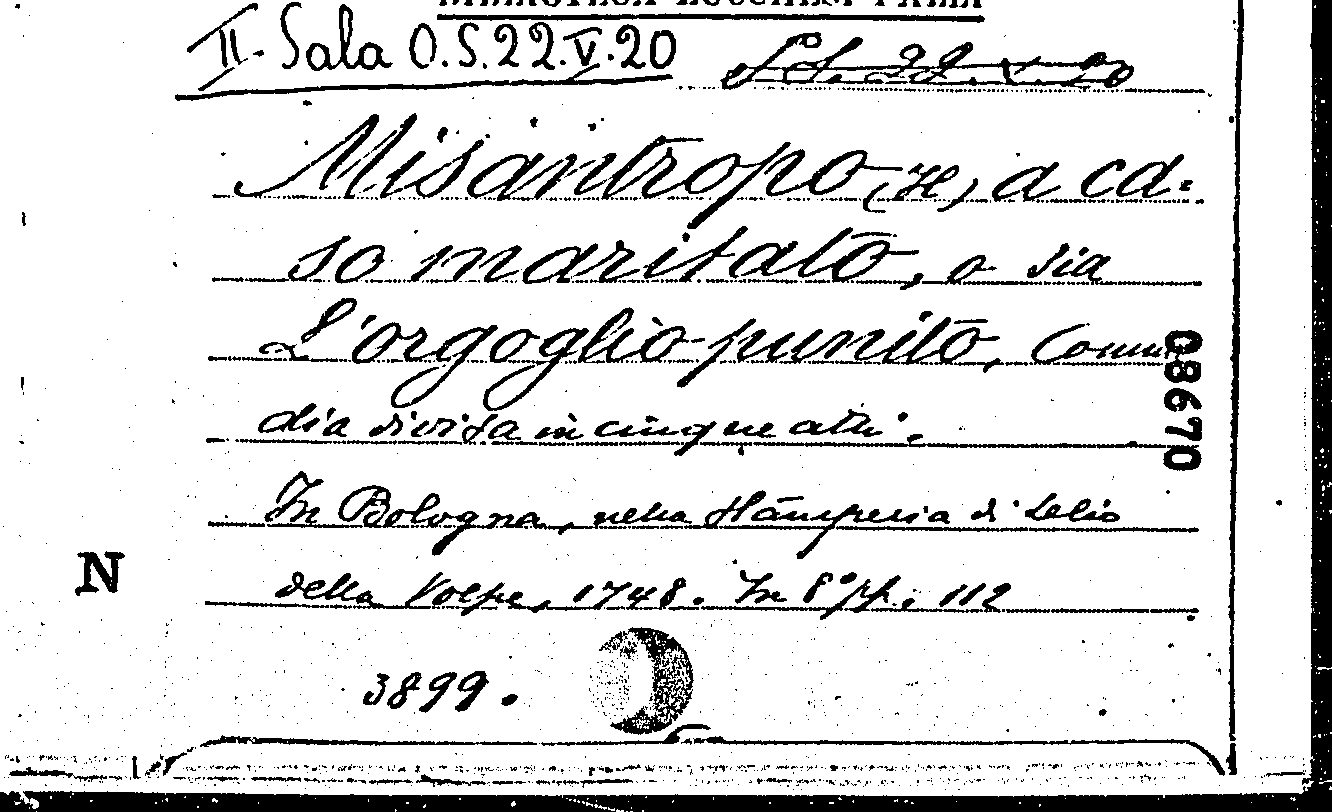 II. Sala O.S.22.V.20
Misantropo (Il) a ca=
so maritato, o sia
L'orgoglio punito, Comme
dia divisa in cinque atti.
In Bologna, nella Stamperia di Lelio
della Volpe, 1748. In 8° pp. 112
3899.
N
08670